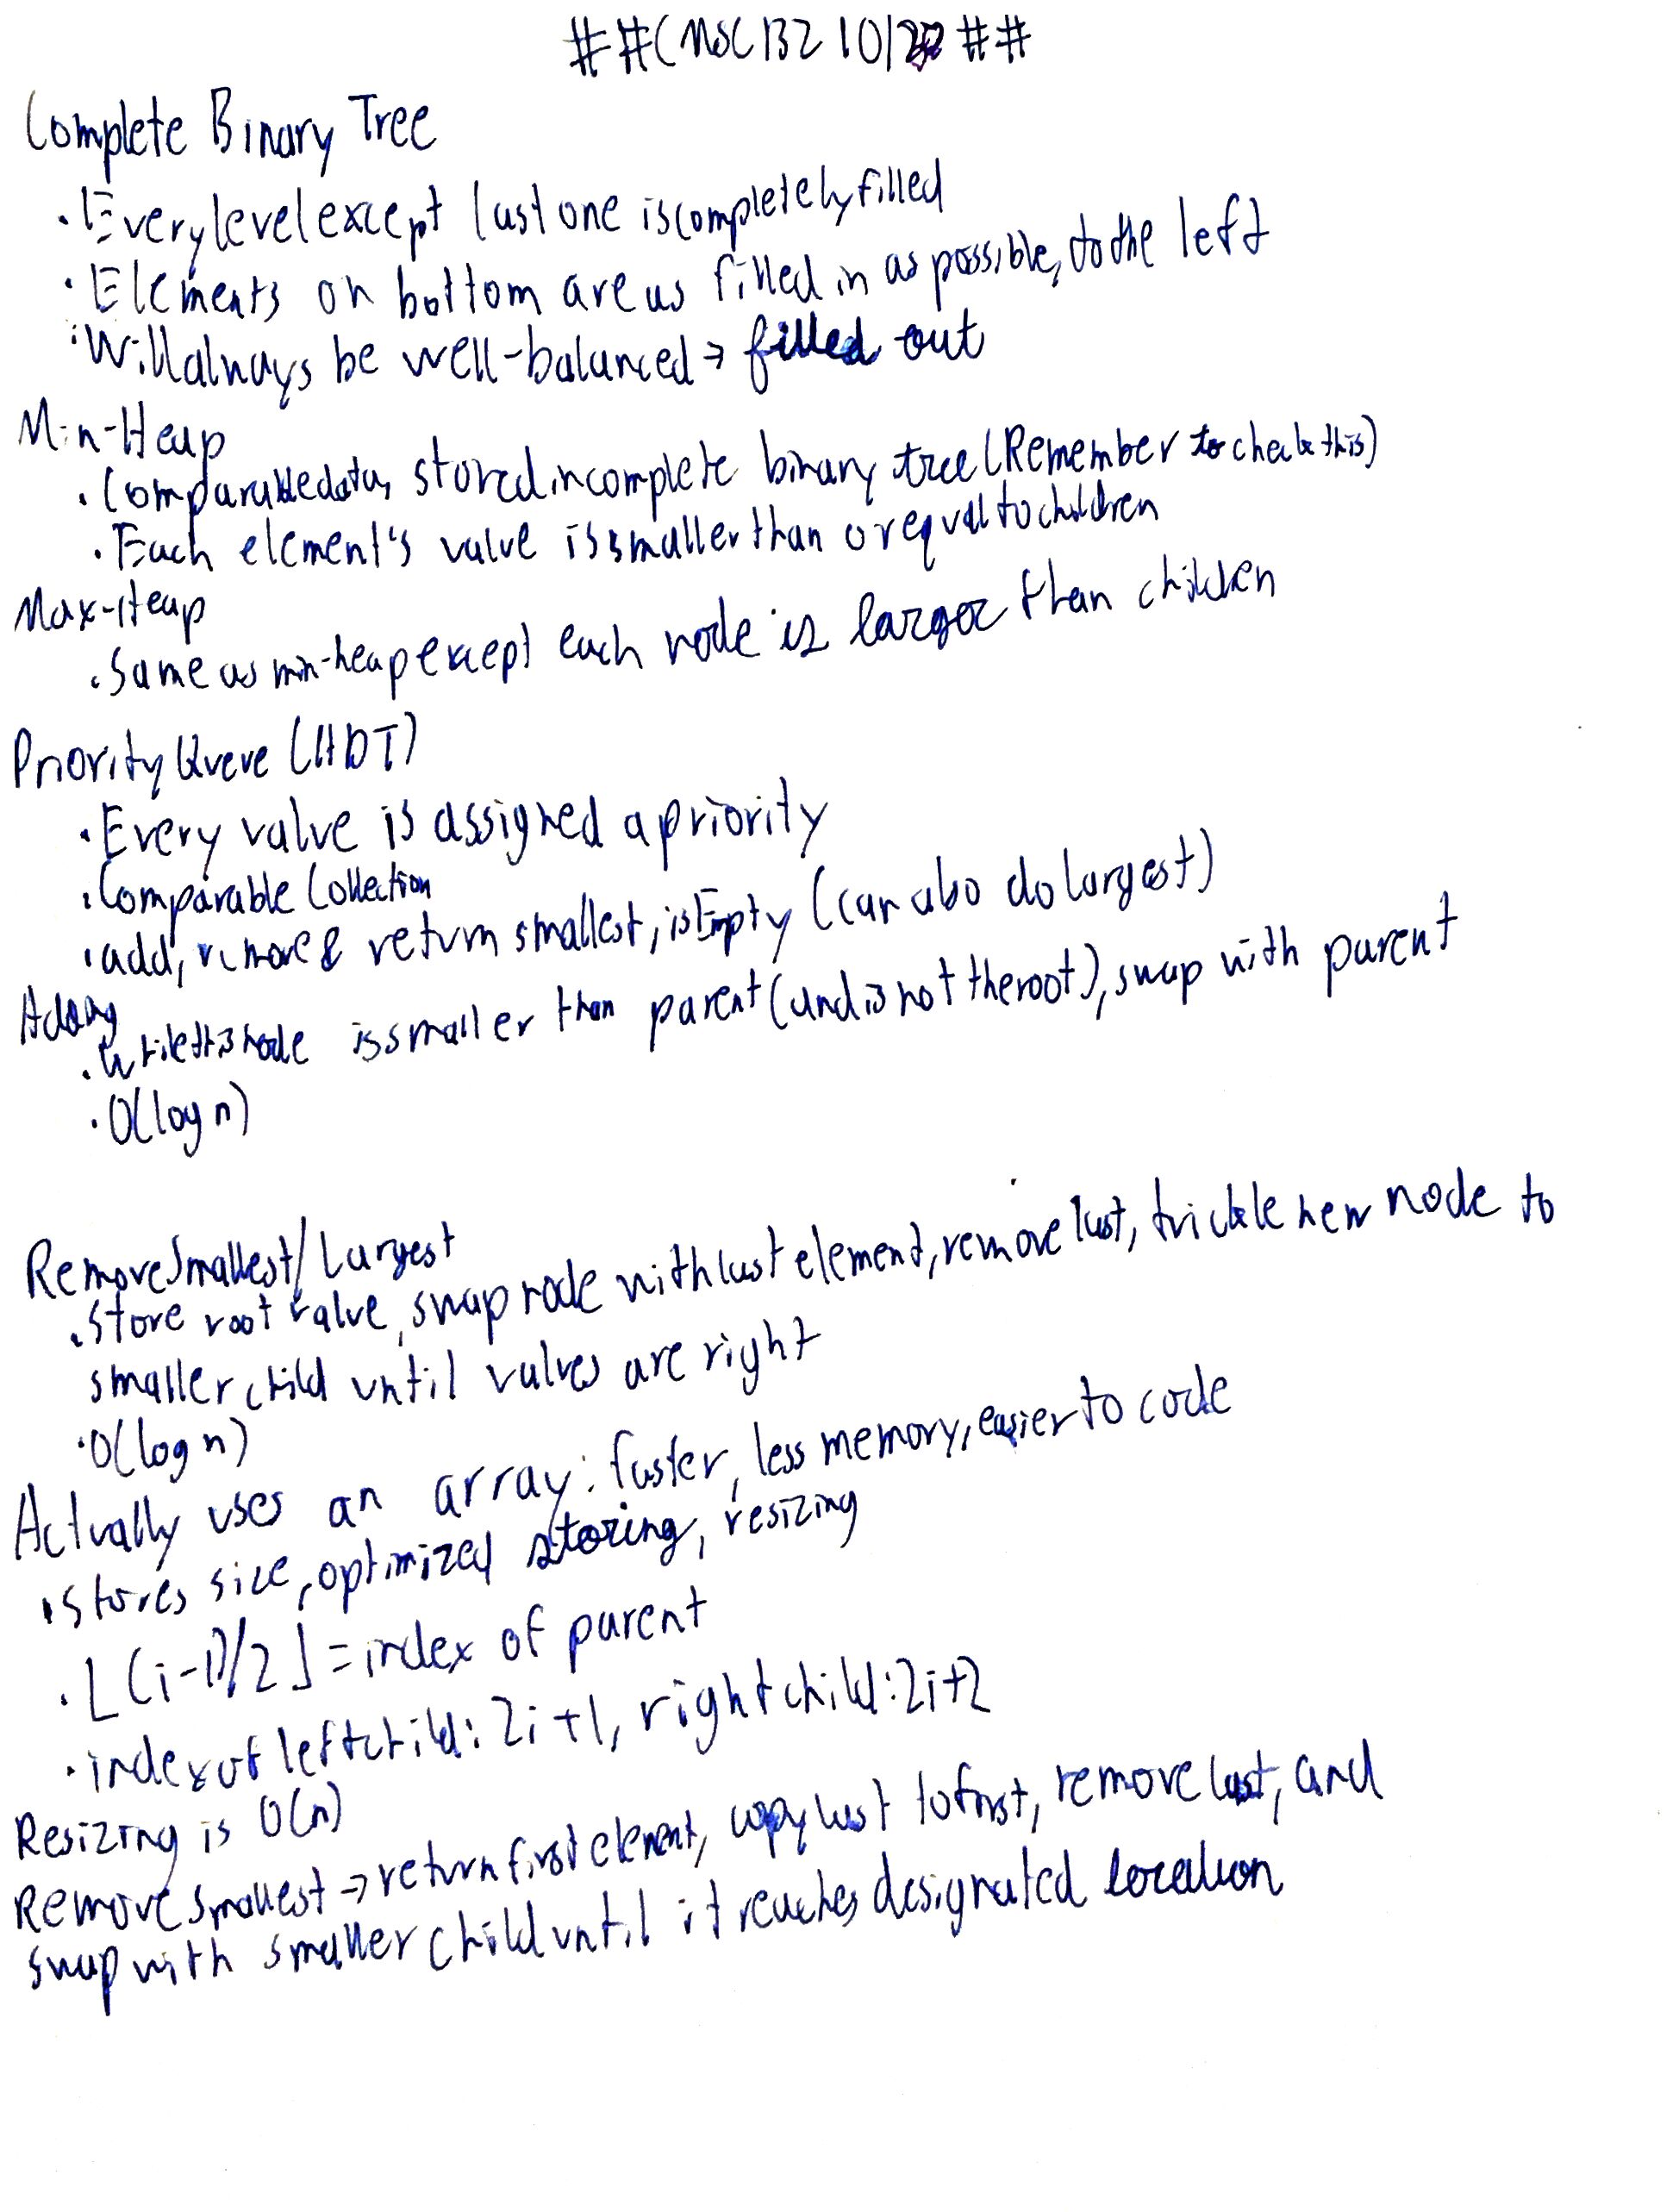 ##CMSC132 10/22 ##
Complete Binary Tree
· Every level except last one is completely filled
· Elements on bottom are as filled in as possible, to the left
· Will always be well-balanced → filled out
Min-Heap
· Comparable data, stored in complete binary tree (Remember to check this)
· Each element's value is smaller than or equal to children
Max-Heap
· Same as min-heap except each node is larger than children
Priority Queue (ADT)
· Every value is assigned a priority
· Comparable Collection
· add, remove & return smallest, isEmpty (can also do largest)
Adding
· While this node is smaller than parent (and is not the root), swap with parent
· O(log n)
Remove Smallest/Largest
· Store root value, swap node with last element, remove last, trickle new node to
smaller child until values are right
· O(log n)
Actually uses an array: faster, less memory, easier to code
· Stores size, optimized storing, resizing
· ⌊(i-1)/2⌋ = index of parent
· index of left child: 2i+1, right child: 2i+2
Resizing is O(n)
Remove smallest → return first element, copy last to first, remove last, and
swap with smaller child until it reaches designated location